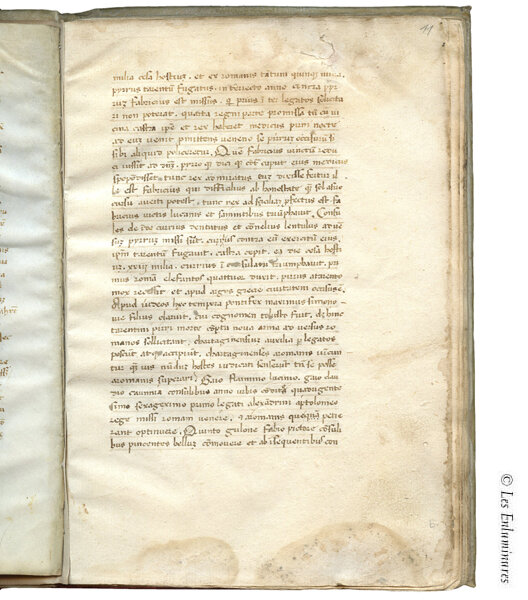 11
milia cesa hostium, et ex romanis tantum quinque milia,
pyrrus tarentum fugatus. interiecto anno contra pyr
rum fabricius est missus. qui prius inter legatos solicita
ri non poterat, quarta regni parte promissa tum cu vi
cina castra ipse et rex haberet medicus pirri nocte
ad eum venit pmittens veneno se pirrum occisurum si
sibi aliquid polliceretur. Quem Fabricius vinctum redu
ci iussit ad dnm, pirroque dici que contra caput eius medicus
spopondisset tunc rex admiratus eum dixisse fertur il
le est fabricius qui difficilius ab honestate quam sol a suo
cursu averti potest, tunc rex ad siciliam profectus est fa
bricius victis lucanis et samnitibus triumphavit. Consu
les de hinc curius dentatus et cornelius lentulus adver
sus pyrrum missi sunt. curius contra eum exercitum eius
ipsum tarentum fugavit, castra cepit. ea die cesa hosti
um xxiii milia. curius in consulatu triumphavit. pri
mus romam elefantos quattuor duxit. pirrus a tarento
mox recessit et apud argos grecie civitatem occisus est.
Apud iudeos hec tempora pontifex maximus simonis
ve filius claruit, cui cognomen iusto fuit. dehinc
tarentini pirri morte comperta nova arma adversus ro
manos sollicitant, chartaginensium auxilia per legatos
poscunt atque accipiunt. chartaginenses a romanis vincun
tur qui nundum hostes iudicati senserunt tamen se posse
a romanis superari. Gaio flaminio lucinio, gaio clau
dio caunnia consulibus anno urbis condite quadringente
simo sexagesimo primo legati alexandrini a ptolomeo
rege missi romam venere, et a romanis quam petie
rant optinuere. Quinto gulone Fabio pictore consuli
bus picentes bellum commovere et ab insequentibus con
© Les Enluminures